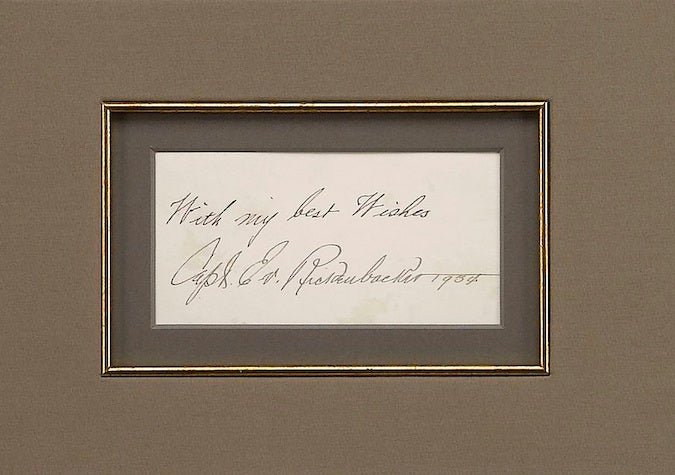 With my best Wishes
Capt. E.v. Rickenbacker 1934